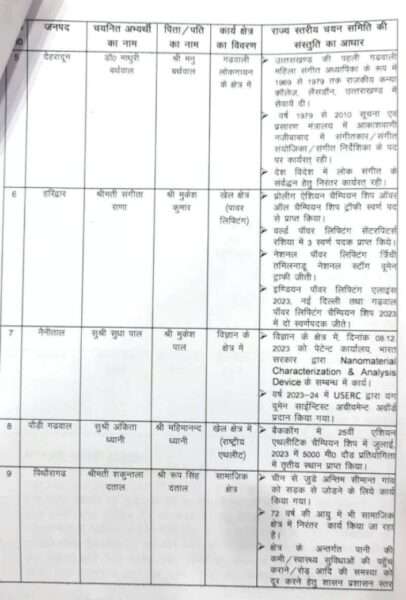 जनपद
चयनित अभ्यर्थी का नाम
पिता/पति का नाम
कार्य क्षेत्र का विवरण
राज्य स्तरीय चयन समिति की संस्तुति का आधार
5
देहरादून
डॉ० माधुरी बर्थवाल
श्री मनु बर्थवाल
गढवाली लोकगायन के क्षेत्र में
➢ उत्तराखण्ड की पहली गढवाली
महिला संगीत अध्यापिका के रूप में
1969 से 1979 तक राजकीय कन्या
कॉलेज, लैंसडौन, उत्तराखण्ड में
सेवायें दी।
➢ वर्ष 1979 से 2010 सूचना एवं
प्रसारण मंत्रालय में आकाशवाणी
नजीबाबाद में संगीतकार/संगीत
संयोजिका/संगीत निर्देशिका के पद
पर कार्यरत् रही।
➢ देश विदेश में लोक संगीत के
संर्वद्धन हेतु निरंतर कार्यरत् रही।
6
हरिद्वार
श्रीमती संगीता राणा
श्री मुकेश कुमार
खेल क्षेत्र (पावर लिफ्टिंग)
➢ एशियन चैम्पियन शिप ऑवर
ऑल चैम्पियन शिप ट्रॉफी स्वर्ण पद
से प्राप्त किया।
➢ वर्ल्ड पॉवर लिफ्टिंग
रशिया में 3 स्वर्ण पदक प्राप्त किये।
➢ नेशनल पॉवर लिफ्टिंग
तमिलनाडू नेशनल स्टॉंग वूमेन
ट्राफी जीती।
➢ इण्डियन पॉवर लिफ्टिंग एलाइस
2023, नई दिल्ली तथा गढवाल
पॉवर लिफ्टिंग चैम्पियन शिप 2023
में दो स्वर्णपदक जीते।
7
नैनीताल
सुश्री सुधा पाल
श्री मुकेश पाल
विज्ञान के क्षेत्र में
➢ विज्ञान के क्षेत्र में, दिनांक 08.12.
2023 को पेटेन्ट कार्यालय, भारत
सरकार द्वारा Nanomaterial
Characterization & Analysis
Device के सम्बन्ध में कार्य।
➢ वर्ष 2023-24 में USERC द्वारा यंग
वूमेन साईन्टिस्ट अचीवमेन्ट अवॉर्ड
प्रदान किया गया।
8
पौड़ी गढवाल
सुश्री अंकिता ध्यानी
श्री महिमानन्द ध्यानी
खेल क्षेत्र में (राष्ट्रीय एथलीट)
➢ बैककॉग में 25वीं एशियन
एथलीटिक चैम्पियन शिप में जुलाई,
2023 में 5000 मी० दौड प्रतियोगिता
में तृतीय स्थान प्राप्त किया।
9
पिथौरागढ
श्रीमती शकुन्तला दताल
श्री रूप सिंह दताल
सामाजिक क्षेत्र
➢ चीन से जुडे अन्तिम सीमान्त गांव
को सड़क से जोड़ने के लिये कार्य
किया गया।
➢ 72 वर्ष की आयु में भी सामाजिक
क्षेत्र में निरंतर कार्य किया जा रहा
है।
➢ क्षेत्र के अन्तर्गत पानी की
कमी/स्वास्थ्य सुविधाओं की पहुँच
कराने/रोड आदि की समस्या को
दूर करने हेतु शासन प्रशासन स्तर